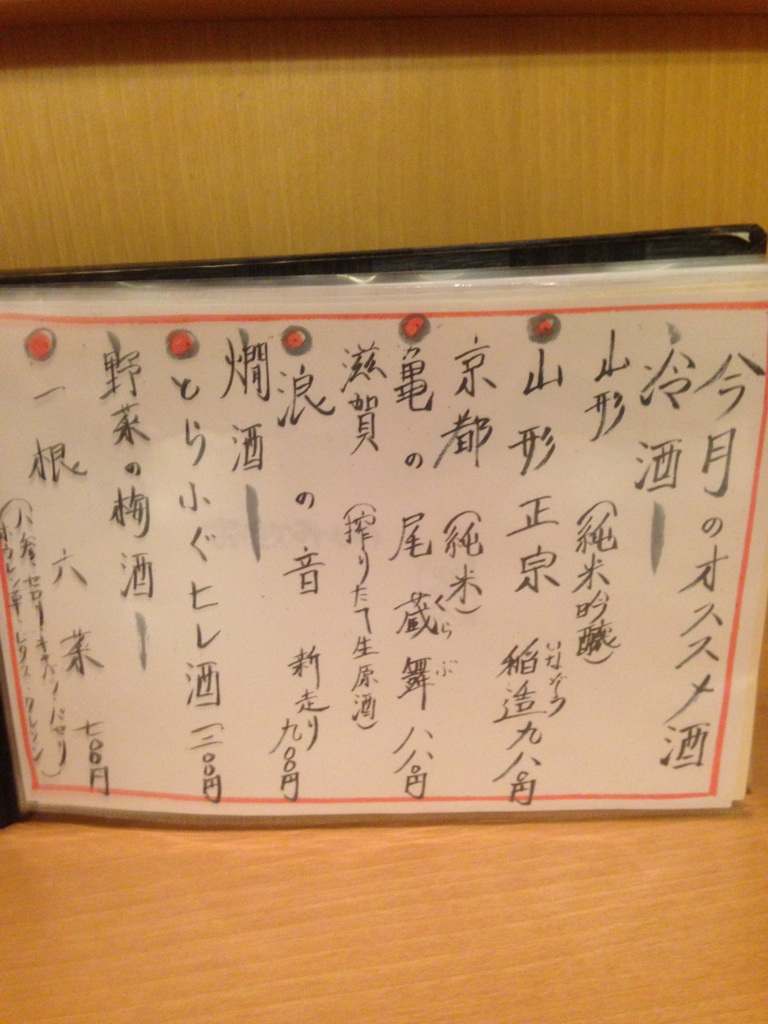 今月のオススメ酒
冷酒ー
山形 (純米吟醸)
山形正宗 稲造 九八〇円
いなぞう
京都 (純米)
亀の尾蔵舞 八八〇円
くら ぶ
滋賀 (搾りたて生原酒)
浪の音 新走り 九〇〇円
燗酒ー
とら小ぐヒレ酒 一二〇〇円
野菜の梅酒ー
一根六菜 七〇〇円
(人参・セロリ・キャベツ・パセリ
ホウレン草・レタス・クレソン)